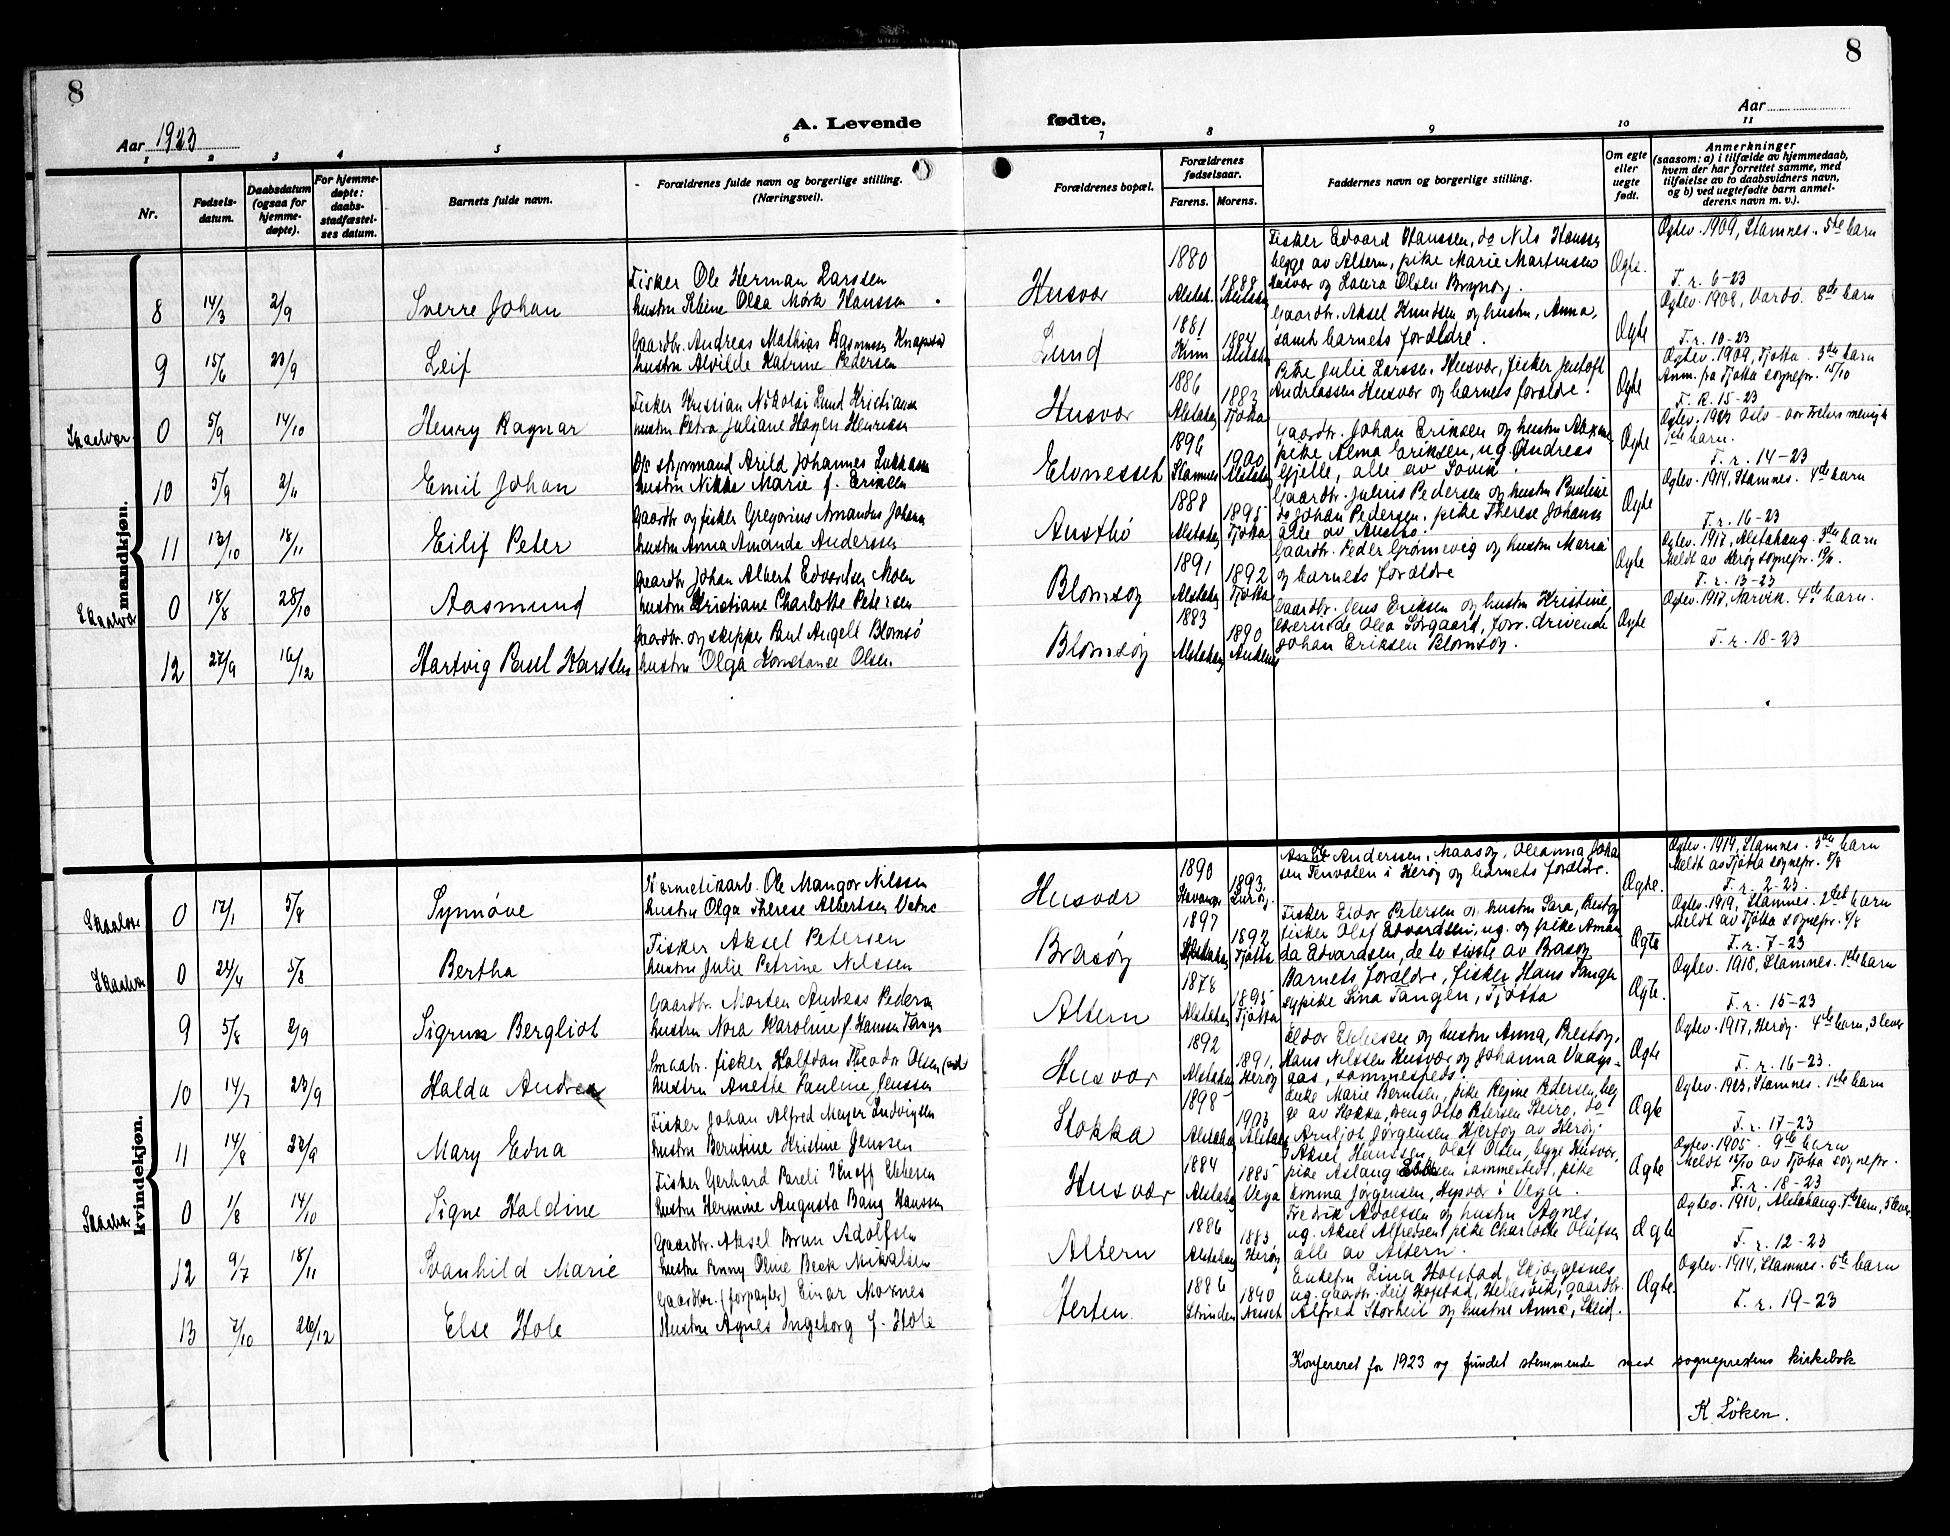 8
8
Aar 1923
A. Levende
fødte.
Aar
1 2 3 4 5 6 7 8 9 10 11
Nr.
Fødsels-
datum.
Daabsdatum
(ogsaa for
hjemme-
døpte).
For hjemme-
døpte:
daabs-
stadfæstel-
ses datum.
Barnets fulde navn.
Forældrenes fulde navn og borgerlige stilling.
(Næringsvei).
Forældrenes bopæl.
Forældrenes
fødselsaar.
Farens. Morens.
Faddernes navn og borgerlige stilling.
Om egte
eller
uegte
født.
Anmerkninger
(saasom: a) i tilfælde av hjemmedaab,
hvem der har forrettet samme, med
tilføielse av to daabsvidners navn,
og b) ved uegtefødte barn anmel-
derens navn m. v.).
mandkjøn.
8 14/3 2/9 Sverre Johan
Fisker Ole Herman Larssen
hustru Olea Mørk Hanssen
Husvær
1880 Alstah. 1888 Alstah.
Fisker Edvard Hanssen, do Nils Hanssen
begge av Altern, pike Marie Martinsen
Husvær og Laura Olsen Brynøy.
Ægte.
Ægtev. 1909, Stamnes. 5te barn
F. r. 6-23
9 15/6 23/9 Leif
Gaardbr. Andreas Mathias Rasmussen
hustru Alvilde Katrine Pedersen
Lund
1881 1884 Alstah
Gaardbr. Aksel Knudsen og hustru, Anna,
samt barnets forældre.
Ægte
Ægtev. 1908, Vardø. 8de barn
F. r. 10-23
Skaalvær 0 5/9 14/10 Henry Ragnar
Fisker Kristian Nikolai Lund Kristiansen
hustru Petra Juliane Hagen Henriksen
Husvær
1886 Alstahg 1883 Tjøtta
Pike Julie Larssen, Husvær, fisker Justoft
Andreassen Husvær og barnets forældre.
Ægte
Ægtev. 1909, Tjøtta. 3die barn
Anm. fra Tjøtta sognepr. 15/10
F. R. 15-23
10 5/9 2/11 Emil Johan
D/s styrmand Arild Johannes Lukkassen
hustru Nikka Marie f. Eriksen
Elvnesset
1896 Stamnes 1900 Alstahg
Gaardbr. Johan Eriksen og hustru
pike Alma Eriksen, ug. Andreas
Gjelle, alle av Søvik.
Ægte
Ægtev. 1923 Oslo - menigh
1ste barn.
F. r. 14-23
11 13/10 18/11 Eilif Peter
Gaardbr og fisker Gregorius Amandus Johans
hustru Anna Amanda Anderssen
Austbø
1888 Alstahg 1895 Tjøtta
Gaardbr. Julius Pedersen og hustru Pauline
do Johan Pedersen, pike Therese Johans
alle av Austbø.
Ægte
Ægtev. 1914, Stamnes. 4de barn
F. r. 16-23
Skaalvær 0 18/8 28/10 Aasmund
Gaardbr Johan Albert Edvardsen Moen
hustru Kristiane Charlotte Petersen
Blomsøy
1891 Alstahg 1892 Tjøtta
Gaardbr. Peder Grønnevig og hustru Maria
og barnets forældre
Ægte
Ægtev. 1917, Alstahaug. 3die barn
Meldt av Herøy sognepr.
F. r. 13-23
12 27/9 16/12 Hartvig Paul Karsten
Gaardbr. og skipper Paul Angell Blomsø
hustru Olga Konstanse Olsen.
Blomsøy
1883 Alstahg 1890
Gaardbr. Jens Eriksen og hustru Kristine,
Olea Sørgaard, forr. drivende
Johan Eriksen Blomsøy.
Ægte
Ægtev. 1917, Narvik. 4de barn.
F. r. 18-23
kvindekjøn.
Skaalvær 0 17/1 5/8 Synnøve
Hermetikarb. Ole Mangor Nilssen
hustru Olga Therese Albertsen
Husvær
1890 1893. Lurøy.
Anderssen, Maasøy, Oleanna Johan
sen Tenvalen i Herøy og barnets forældre.
Ægte.
Ægtev. 1919, Stamnes. 3die barn
Meldt av Tjøtta sognepr. 5/8
F. r. 2-23.
Skaalvær 0 24/4 5/8 Bertha
Fisker Aksel Petersen
hustru Julie Petrine Nilssen
Brasøy
1897 Alstahg 1892 Tjøtta
Fisker Eldor Petersen og hustru Sara, Prestøy
fisker Olaf Edvardsen, ug. og pike Aman
da Edvardsen, de to sidste av Brasøy
Ægte
Ægtev. 1919, Stamnes. 2det barn
Meldt av Tjøtta sognepr. 5/8
F. r. 7-23
9 5/8 2/9 Sigrun Bergliot
Gaardbr. Morten Andreas Pedersen
hustru Nora Karoline f. Hanssen Tangen
Altern
1878 Alstahg 1895 Tjøtta
Barnets forældre, fisker Hans Tangen
sypike Lina Tangen, Tjøtta
Ægte.
Ægtev. 1918, Stamnes. 1ste barn
F. r. 15-23
10 14/7 23/9 Halda Andrea
Smaabr. fisker Halfdan Theodor Olsen
hustru Anette Pauline Jenssen
Husvær
1892 Alstahg 1891. Herøy
Eldor Ebbesen og hustru Anna, Prestøy,
Hans Nilssen Husvær og Johanna Vaag-
aas, sammesteds.
Ægte
Ægtev. 1917, Herøy. 4de barn, 3 lever
F. r. 16-23.
11 14/8 23/9 Mary Edna
Fisker Johan Alfred Meyer Ludvigsen
hustru Berntine Kristine Jenssen
Stokka
1898 Alstahg 1903 Alstahg
Enke Marie Berntsen, pike Regine Petersen, beg
ge av Stokka, Beng Otto Petersen do
Arnljot Jørgensen Hjertøy av Herøy.
Ægte
Ægtev. 1923, Stamnes. 1ste barn
F. r. 17-23
Skaalvær 0 1/8 14/10 Signe Haldine
Fisker Gerhard Pareli Hoff Ebbesen
hustru Hermine Augusta Bang Hanssen
Husvær
1884 Alstahg 1885 Vega
Aksel Hanssen, Olaf Olsen, begge Husvær,
pike Aslaug sammesteds, pike
Emma Jørgensen, Hysvær i Vega.
Ægte
Ægtev. 1905. 9de barn
Meldt 15/10 av Tjøtta sognepr.
F. r. 18-23
12 9/7 18/11 Svanhild Marie
Gaardbr. Aksel Brun Adolfsen
hustru Anny Oline Beck Mikalsen
Altern
1886 Alstahaug 1883. Herøy
Fredrik Adolfsen og hustru Agnes,
ug. Aksel Alfredsen, pike Charlotte Olufsen
alle av Altern.
Ægte
Ægtev. 1910, Alstahaug. 7de barn, 5 lever
F. r. 12-23
13 7/10 26/12 Else Hole
Gaardbr. (forpagter) Einar Moxnes
Hustru Agnes Ingeborg f. Hole
Herten.
1886 Strinden 1890 Nesset
Enkefru Lina Hofstad,
ug. gaardbr. Leif Hofstad, gaardbr.
Alfred Storheil og hustru Anna, Skeid.
Ægte.
Ægtev. 1914, Stamnes. 5te barn
F. r. 19-23
Konfereret for 1923 og fundet stemmende med sogneprestens kirkebok
K. Løken.